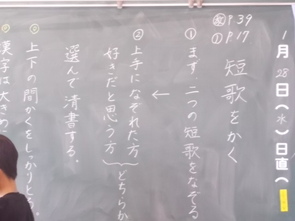 1月28日(水)日直(
教P39
①P17
短歌をかく
①まず二つの短歌をなぞる。
↓
②上手になぞれた方
好きだと思う方
どちらか
選んで清書する。
③上下の間かくをしっかりと
漢字は大きめ